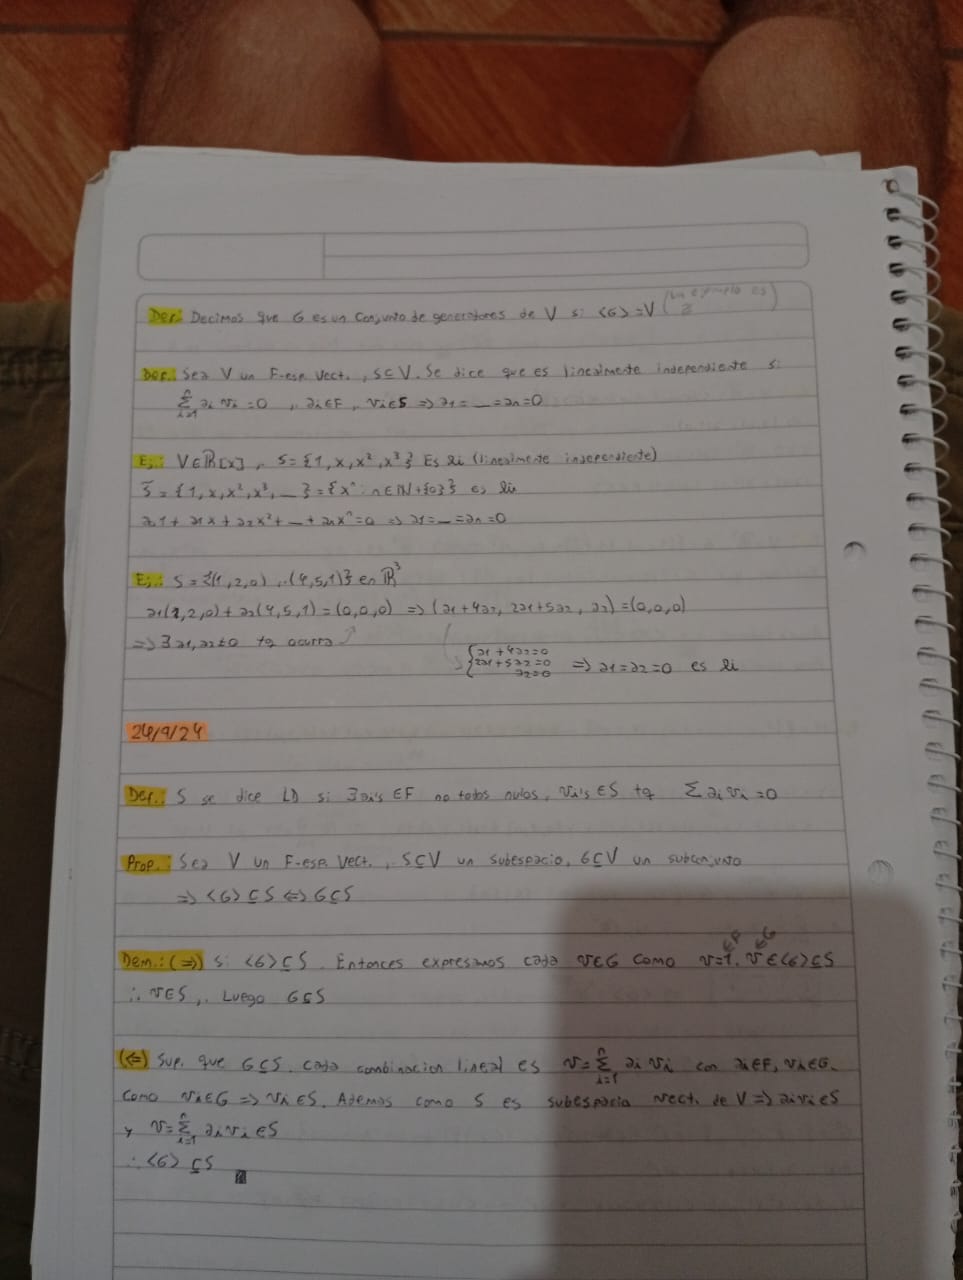 Def: Decimos que G es un conjunto de generadores de V si <G>=V (un ejemplo es
Def.: Sea V un F-esp. Vect., S⊆V. Se dice que es linealmente independiente si
∑_{i=1}^{n} ai vi = 0 , ai∈F, vi∈S ⇒ a1=_=an=0
Ej.: V∈ℝ[x], S={1, x, x², x³} Es li (linealmente independiente)
S̃={1, x, x², x³, _}={xⁿ: n∈ℕ+{0}} es li
a01+a1x+a2x²+_+anxⁿ=0 ⇒ a1=_=an=0
Ej.: S={(1,2,0),(4,5,1)} en ℝ³
a1(1,2,0)+a2(4,5,1)=(0,0,0) ⇒ (a1+4a2, 2a1+5a2, a2)=(0,0,0)
⇒ ∃ a1,a2≠0 tq ocurra
{a1+4a2=0
2a1+5a2=0 ⇒ a1=a2=0 es li
a2=0
24/9/24
Def.: S se dice LD si ∃ ai's ∈F no todos nulos, vi's ∈S tq ∑ai vi=0
Prop.: Sea V un F-esp. Vect., S⊆V un subespacio, G⊆V un subconjunto
⇒ <G>⊆S ⇔ G⊆S
Dem.: (⇒) Si <G>⊆S. Entonces expresamos cada v∈G como v=1.v∈<G>⊆S
∈F ∈G
∴ v∈S,. Luego G⊆S
(⇐) Sup. que G⊆S. cada combinacion lineal es v=∑_{i=1}^{n} ai vi con ai∈F, vi∈G.
Como vi∈G ⇒ vi∈S. Ademas como S es subespacio vect. de V ⇒ aivi∈S
y v=∑_{i=1}^{n} aivi∈S
∴ <G>⊆S